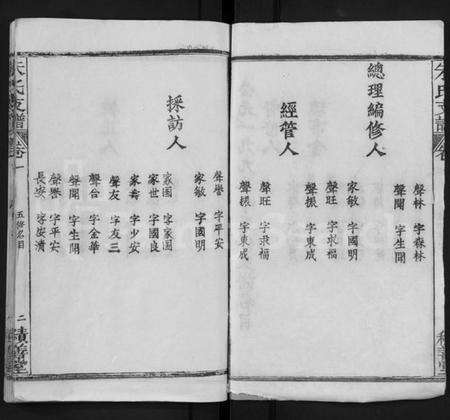 朱氏支譜
卷
總理編修人
聲林 字森林
聲聞 字生聞
家敏 字國明
聲旺 字永福
聲振 字東成
經管人
聲旺 字永福
聲振 字東成
採訪人
聲譽 字平安
家敏 字國明
家國 字家國
家世 字國良
家壽 字少安
聲友 字友三
聲台 字金華
聲聞 字生聞
聲譽 字平安
長安 字安清
朱氏支譜
卷一
五修名目
二
積善堂